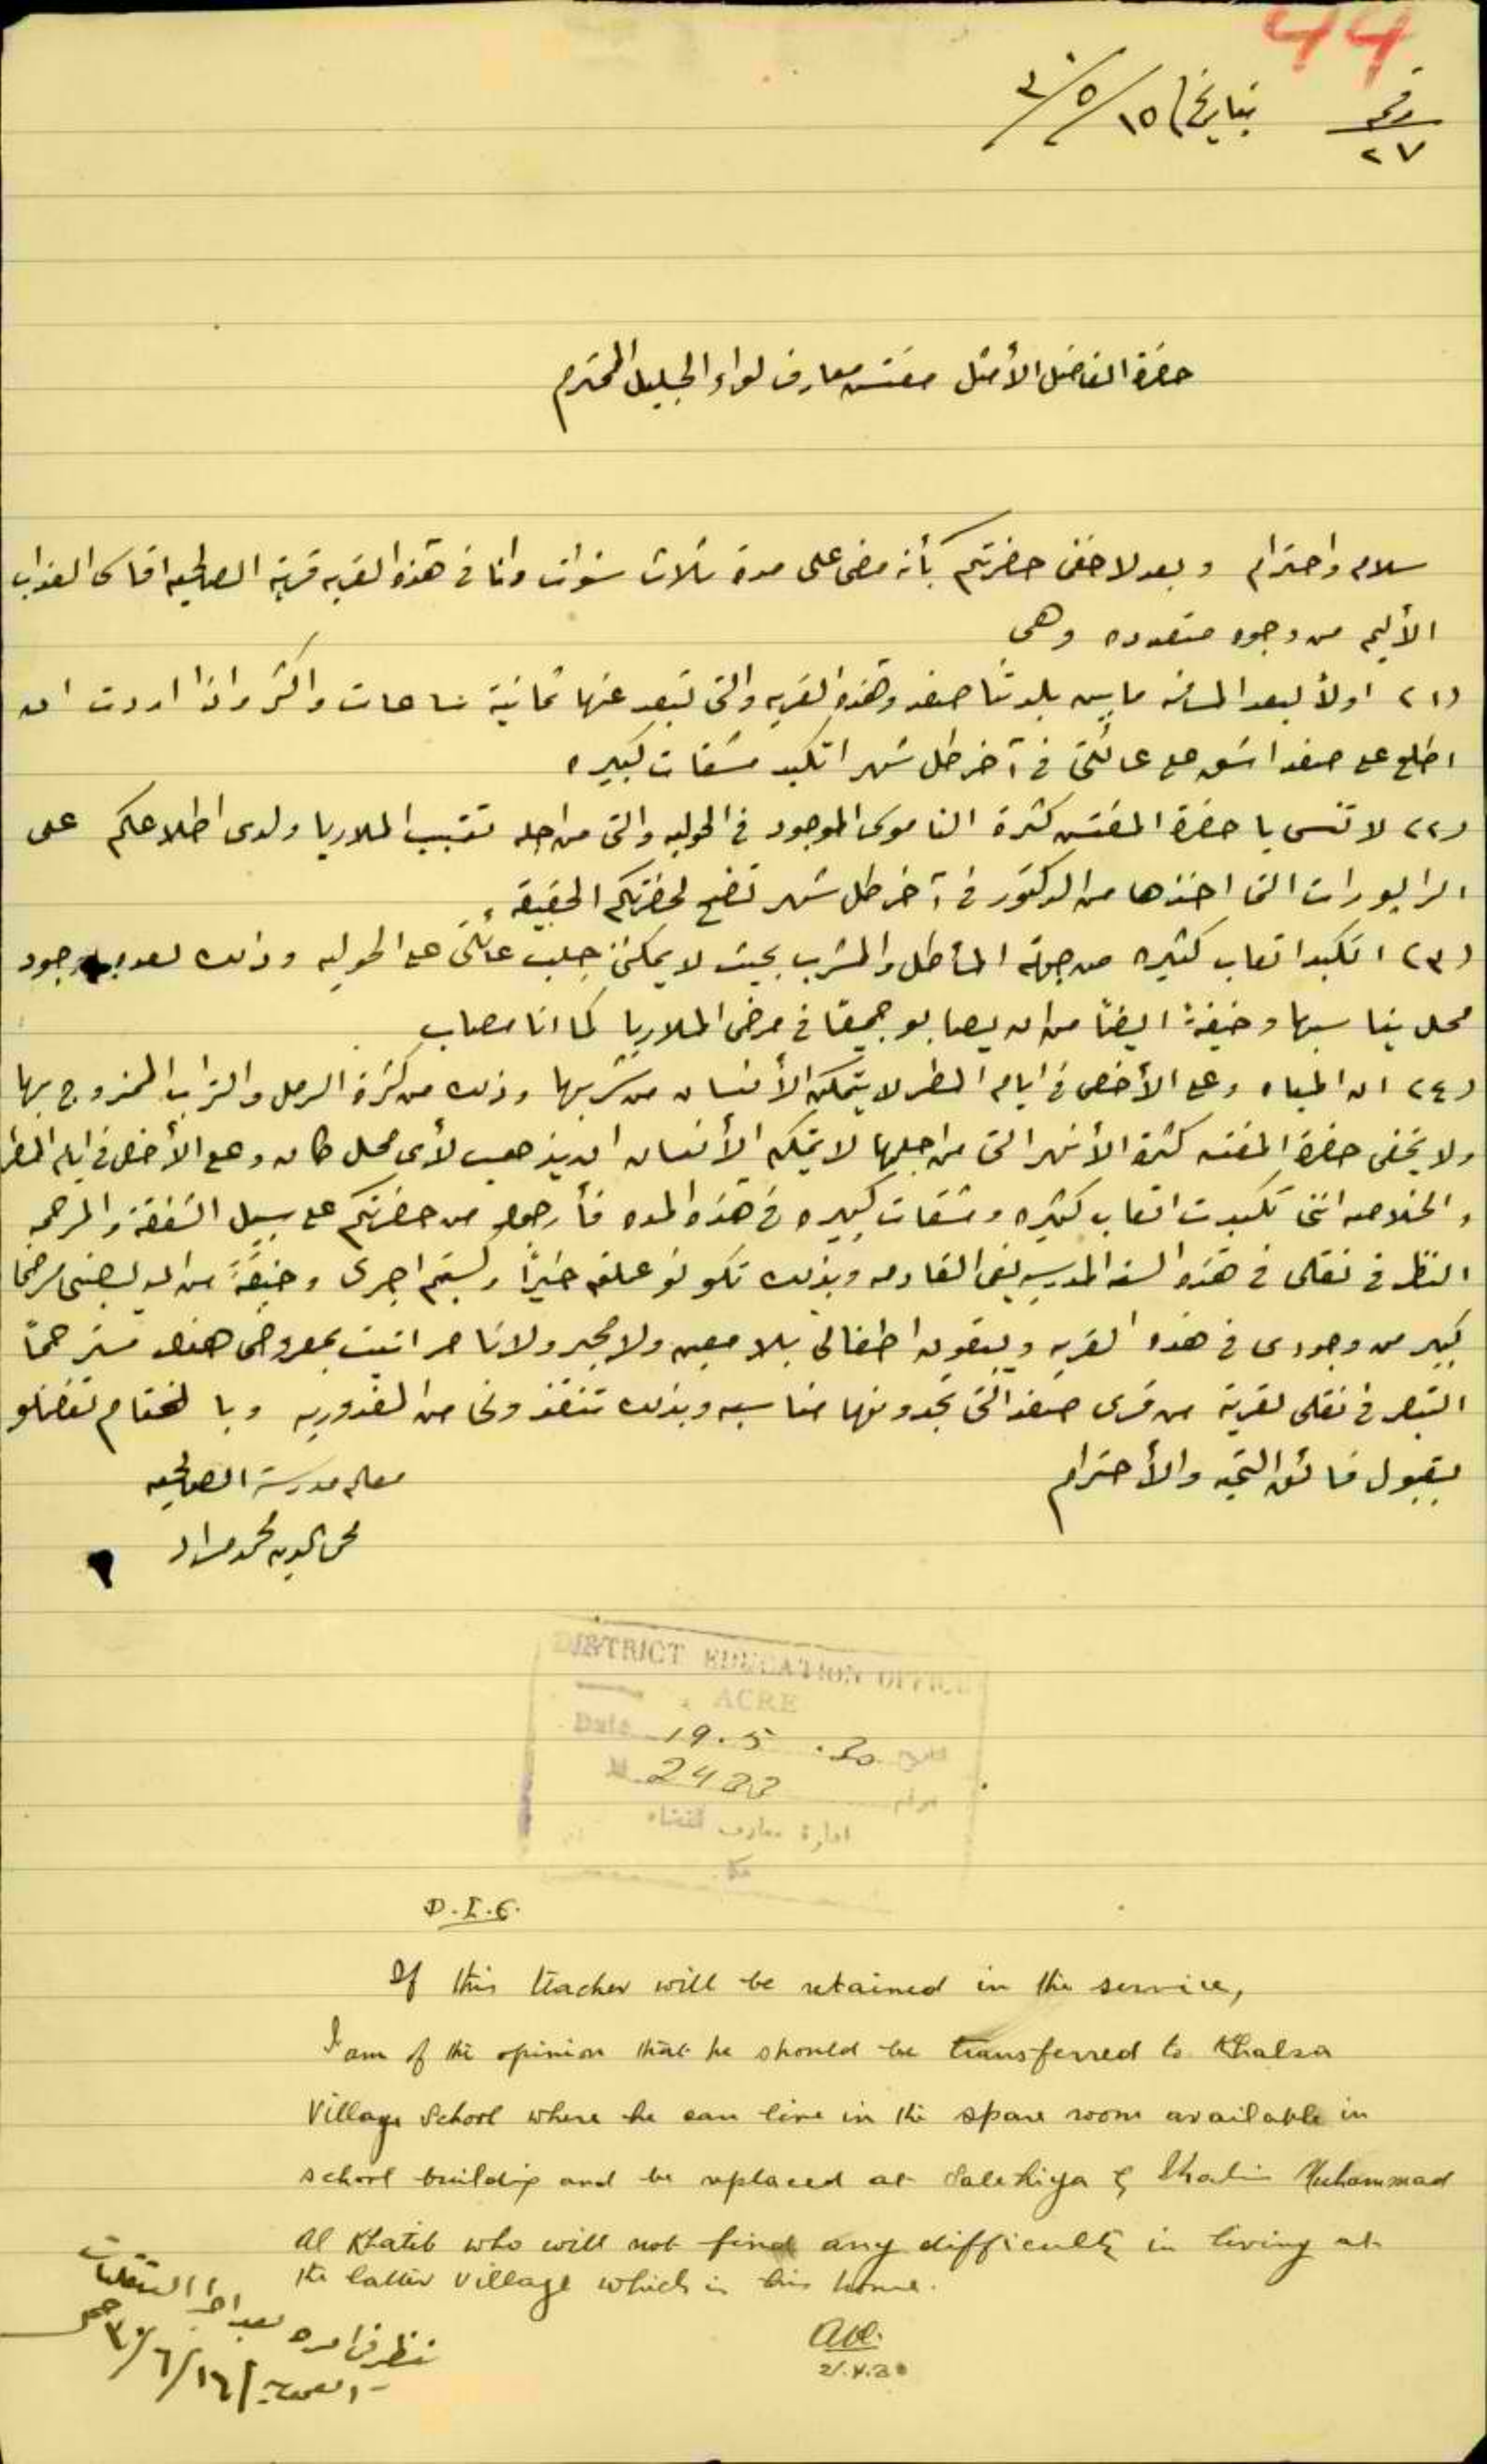 44
رقم
٢٧
بتاريخ ١٥/٥/٣٠
حضرة الفاضل الأمثل مفتش معارف لواء الجليل المحترم
سلام واحترام وبعد لا خفى حضرتكم بأنه مضى على مدة ثلاث سنوات وانا في هذه القريه قرية الصالحيه اقاسى العذاب
الأليم من وجوه متعدده وهي
(١) اولاً لبعد المسافه ما بين بلدتنا صفد وهذه القريه والتى تبعد عنها ثمانية ساعات واكثر واذا اردت ان
اطلع على صفد اشق على عائلتى في آخر كل شهر اتكبد مشقات كبيره
(٢) لا تنسى يا حضرة المفتش كثرة الناموس الموجود في الحوله والتى من اجله تسبب الملاريا ولدى اطلاعكم على
الرابورات التى اخذها من الدكتور في آخر كل شهر تضح لحضرتكم الحقيقة
(٣) اتكبد اتعاب كثيره من جهة المأكل والمشرب بحيث لا يمكننى جلب عائلتى على الحوله وذلك لعدم وجود
محل يناسبها وخيفةً ايضاً من ان يصابو جميعا في مرض الملاريا كما انا مصاب
(٤) ان المياه وعلى الأخص في ايام المطر لا يتمكن الأنسان من شربها وذلك من كثرة الرمل والتراب الممزوج بها
ولا يخفى حضرة المفتش كثرة الأنهر التى من اجلها لا يتمكن الأنسان ان يذهب لأى محل كان وعلى الأخص في ايام المطر
والخلاصه اننى تكبدت اتعاب كثيره ومشقات كبيره في هذه المده فأرجو من حضرتكم على سبيل الشفقة والمرحمه
النظر في نقلى في هذه السنه المدرسيه القادمه وبذلك تكونو عملتم خيراً وكسبتم اجرى وخيفةً من ان يصبنى مرضاً
كبير من وجودى في هذه القريه ويبقون اطفالى بلا معين ولا مجير ولا ناصر اتيت بمعروضى هذا مسترحماً
التبصر في نقلى لقرية من قرى صفد التى تجدونها مناسبه وبذلك تنقذونى من الغدوريه وبالختام تفضلو
بقبول فائق التحيه والأحترام
معلم مدرسة الصالحيه
محى الدين محمد مراد
DISTRICT EDUCATION OFFICE
ACRE
Date 19.5.30 تاريخ
N. 2422
ادارة معارف القضاء
عكا
D.I.E.
If this teacher will be retained in the service,
I am of the opinion that he should be transferred to Khalsa
Village School where he can live in the spare room available in
school building and be replaced at Salehiya by Muhammad
Al Khatib who will not find any difficulty in living at
the latter village which is his home.
ننظر في امره بعد اجراء التنقلات
١٦/٦/٣٠